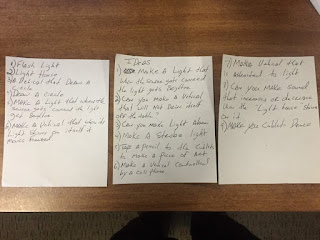 1) Flash Light
2) Light House
3) Vehical that Draws a
Circle
4) Draw A Circle
5) Make A Light that when the
sensor gets covered the light
gets Brighter
6) Make A Vehical that when the
Light Shines on itself it
Moves
Ideas
1) Make A Light that
when the sensor gets covered
the light gets Brighter
2) Can you Make a Vehical
that will Not Drive itself
off the table?
3) Can you Make Light
4) Make A Strobe light
5) Tap a pencil to the Cubelets
to make a Piece of Art
6) Make a Vehical Controlled
by a cell phone
7) Make Vehical that
is attracted to light
8) Can you Make sound
that increases or decreases
when the Light beam shines
on it
9) Make you Cubelets Dance